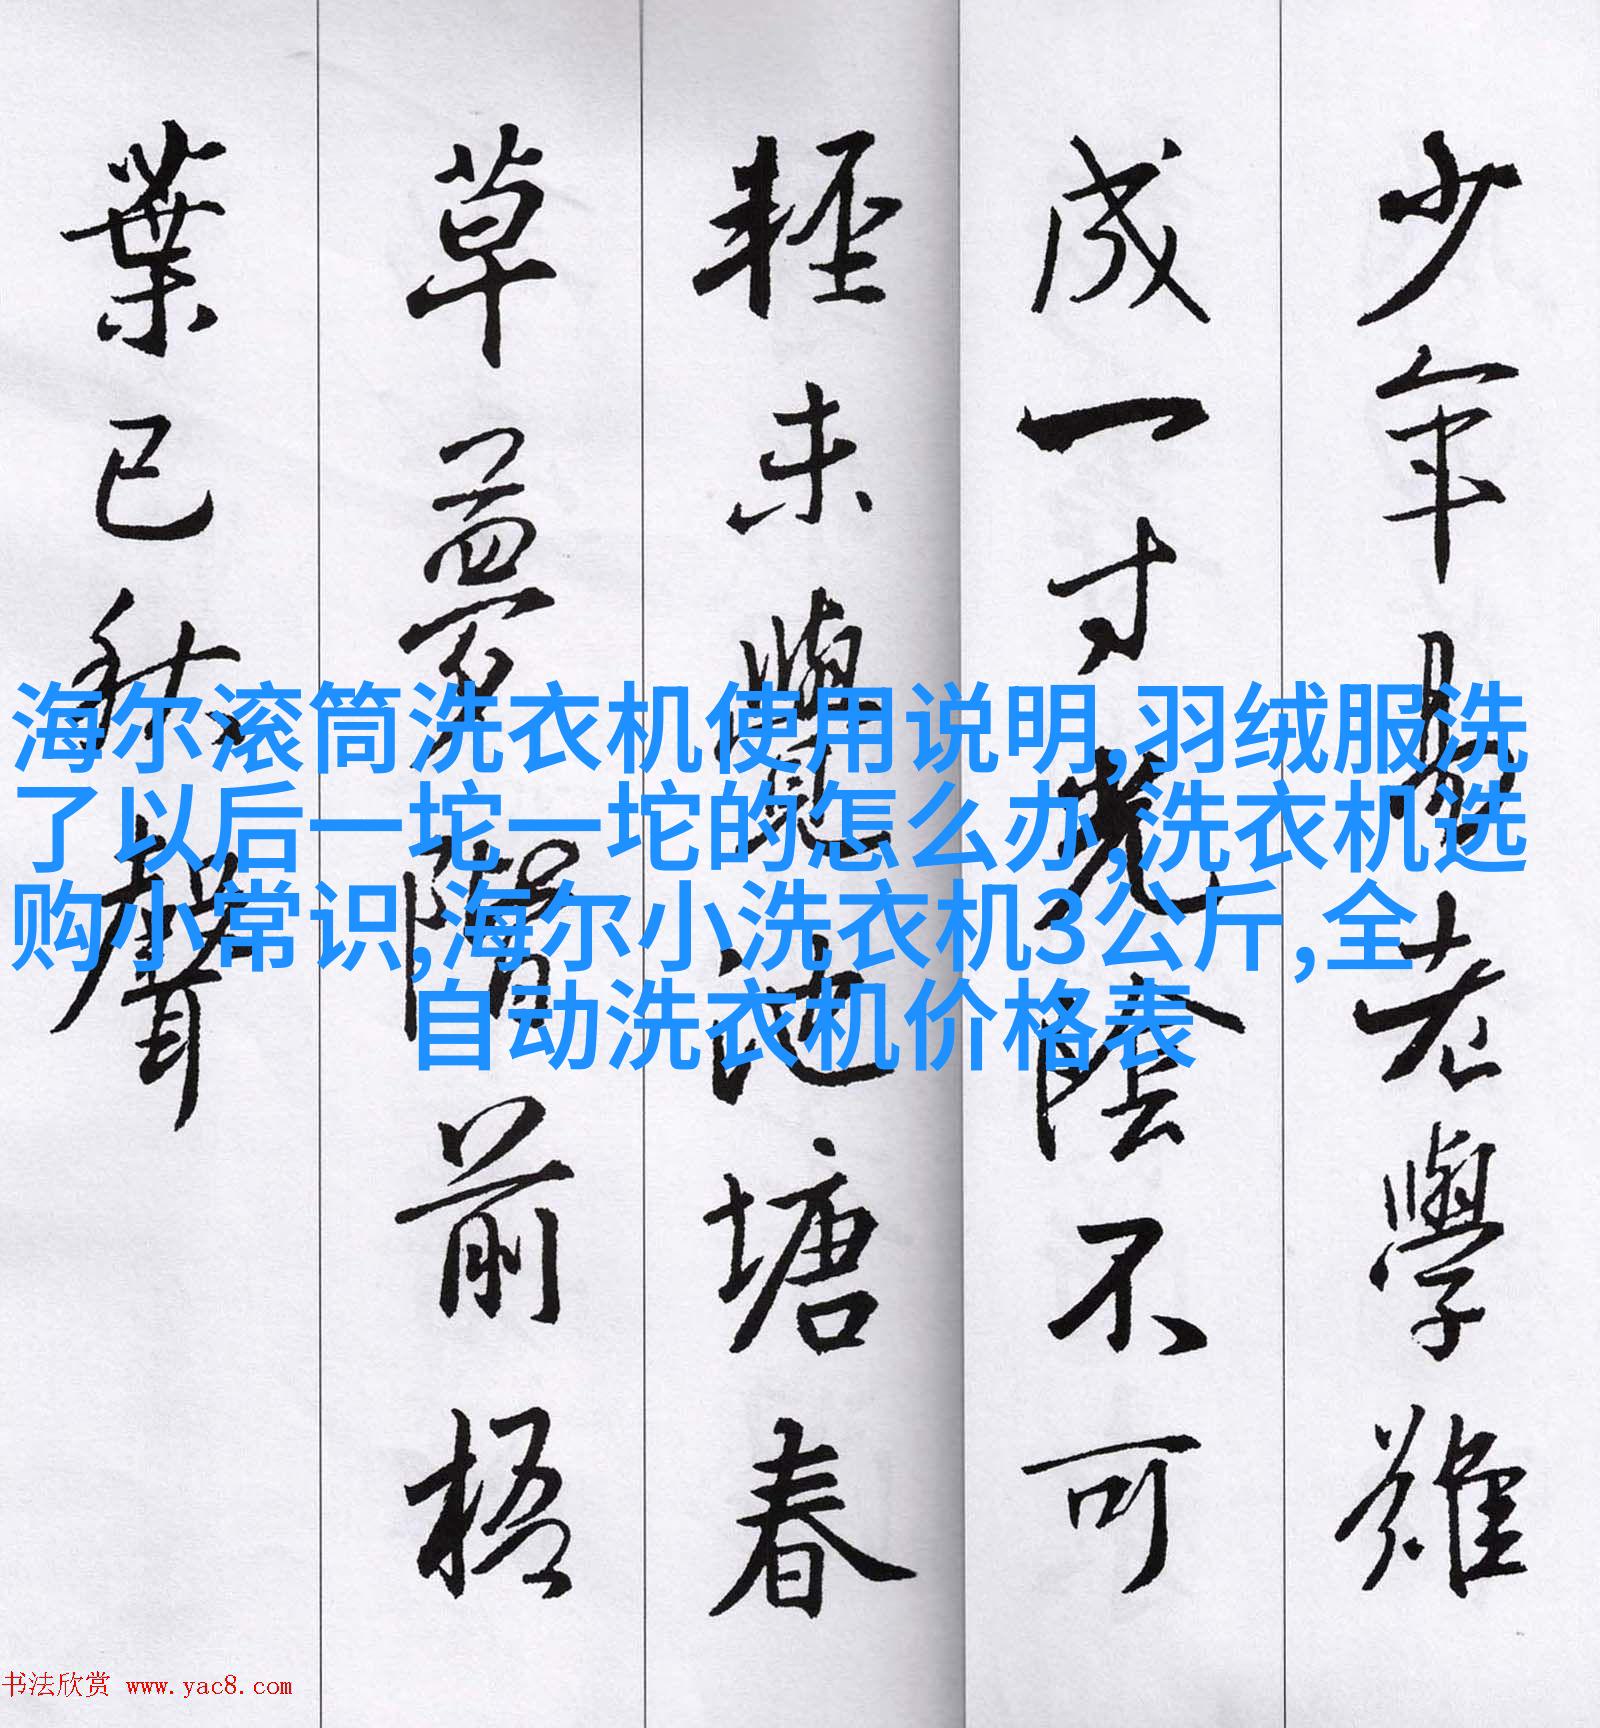 少年易老學難
成一寸光陰不可
輕未覺池塘春
草夢階前梧
葉已秋聲
海尔滚筒洗衣机使用说明,羽绒服洗
了以后一坨一坨的怎么办,洗衣机选
购小常识,海尔小洗衣机3公斤,全
自动洗衣机价格表
书法欣赏 www.yac8.com